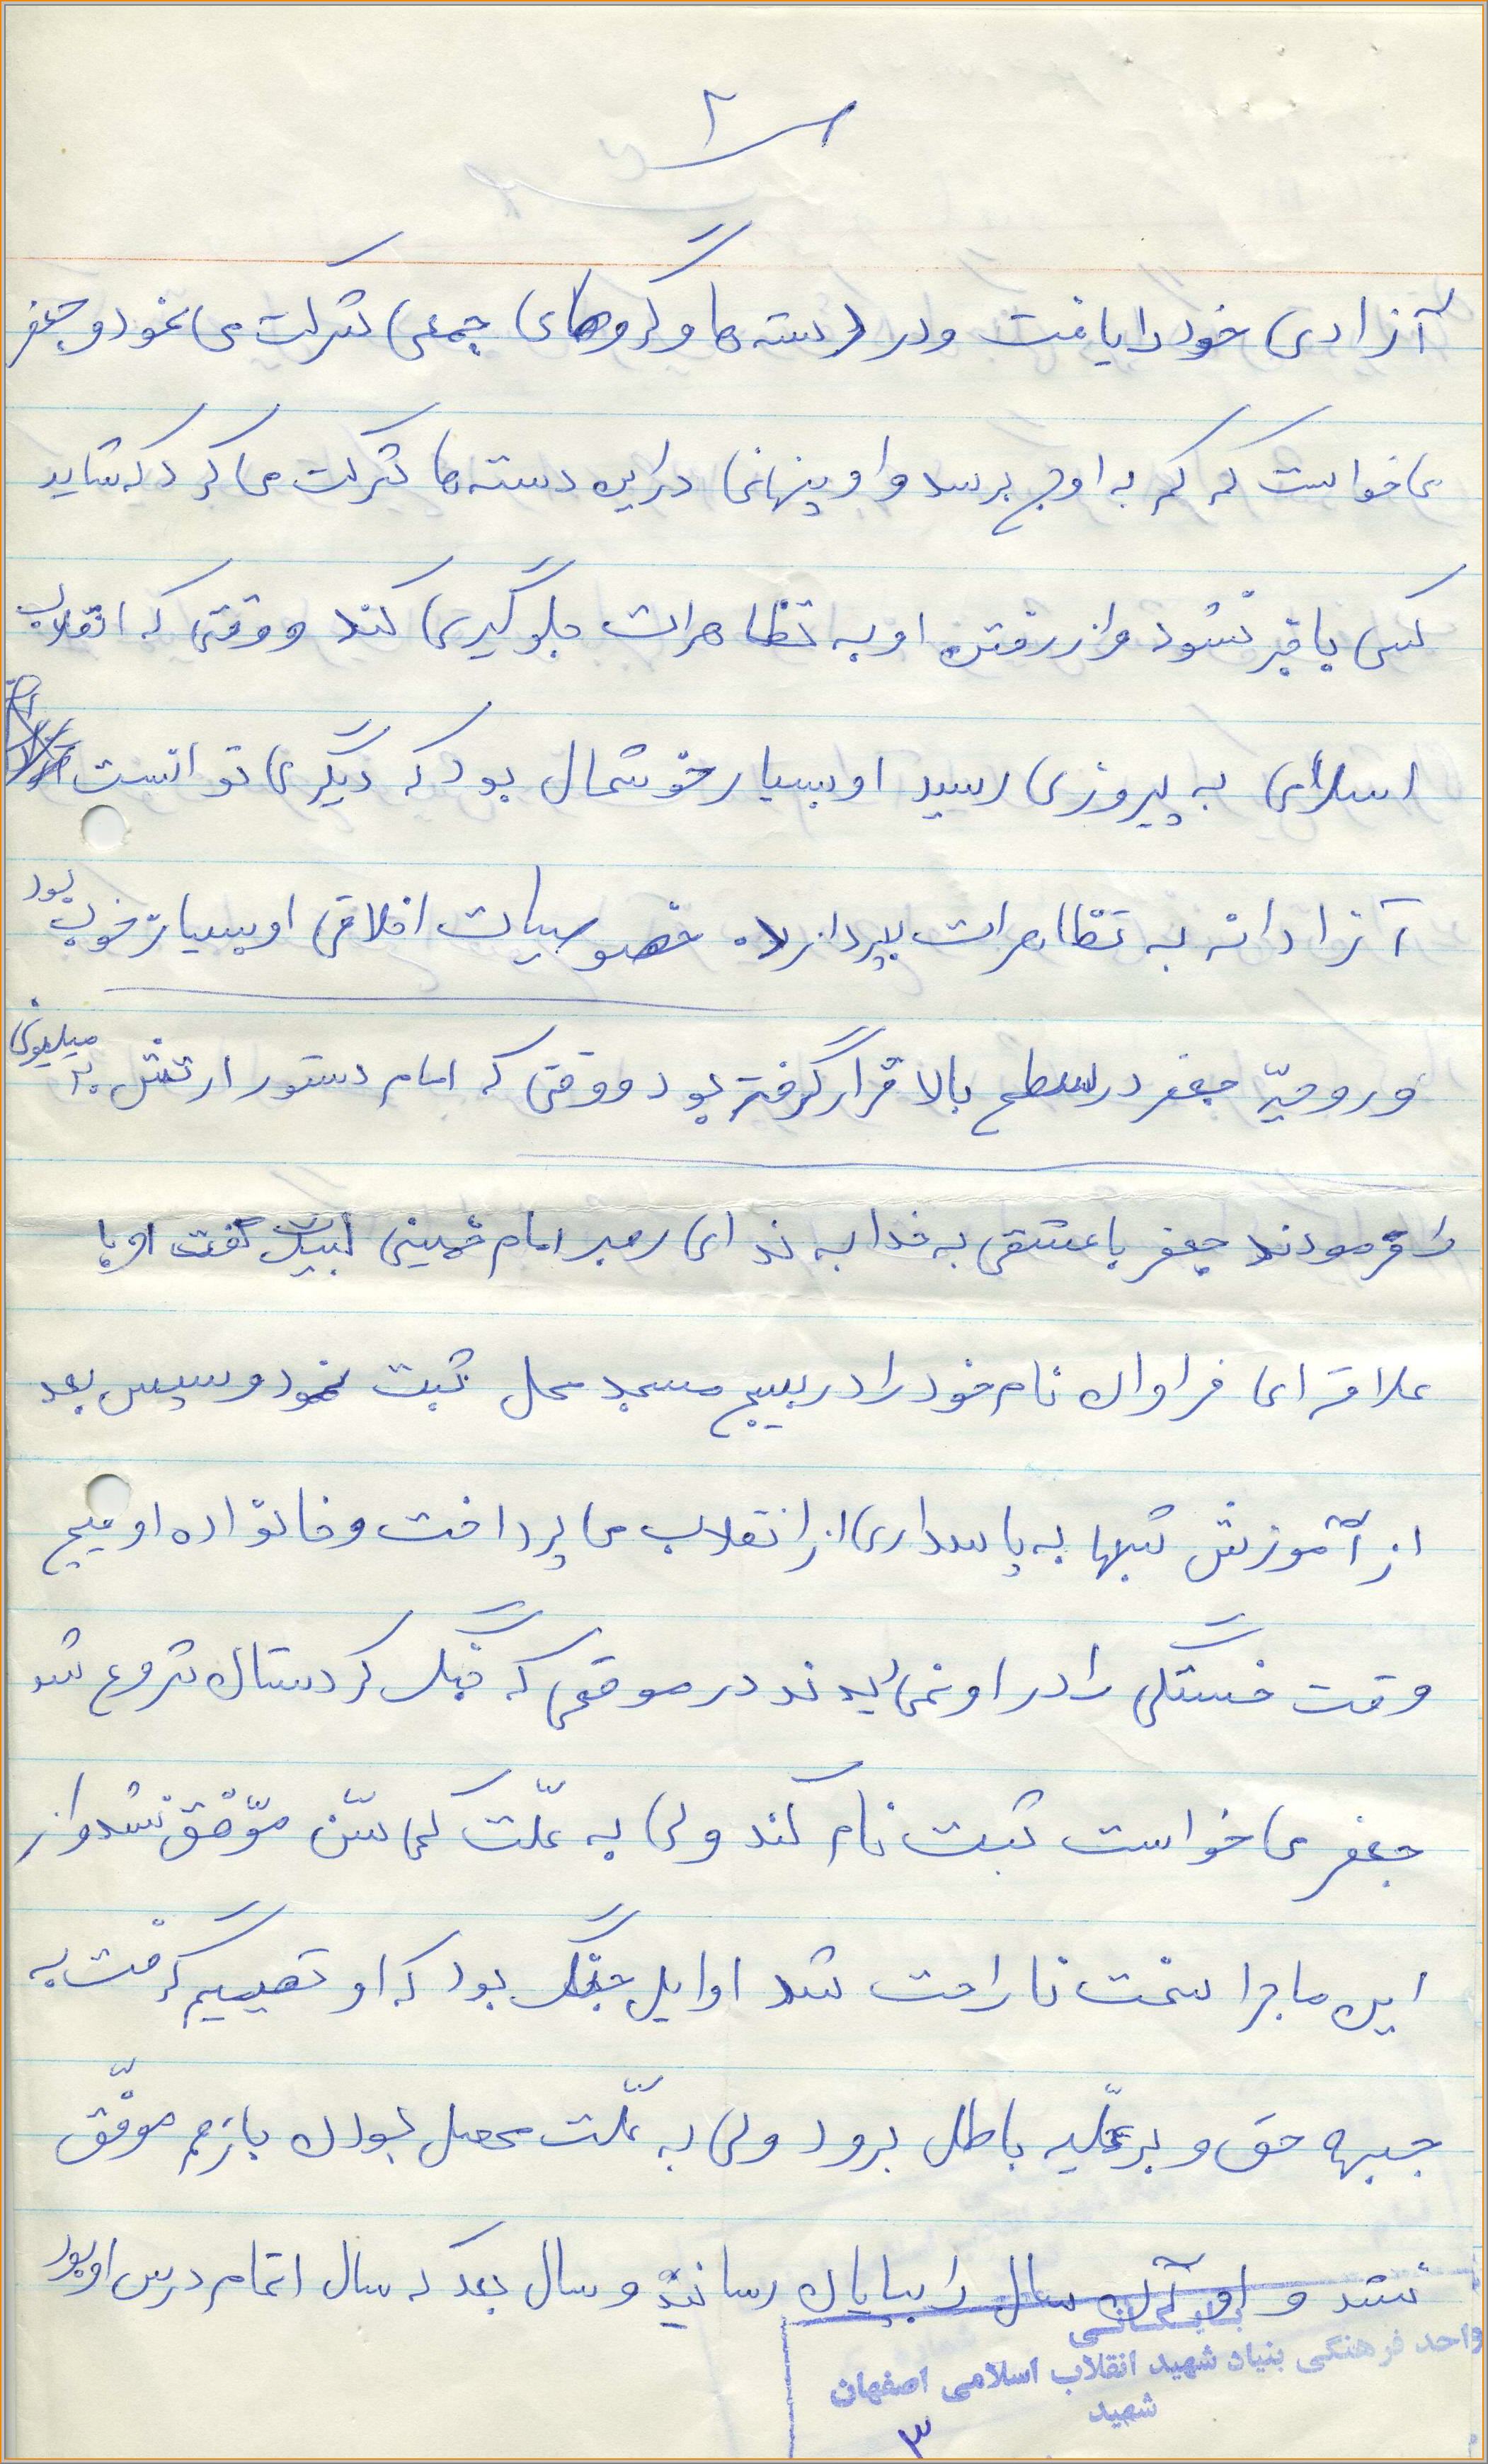 ۲
آزادی خود را یافت و در دسته ها و گروهای جمعی شرکت می نمود و جعفر
می خواست که کم به اوج برسد و او پنهانی در این دسته ها شرکت می کرد که شاید
کسی با خبر نشود و از رفتن او به تظاهرات جلوگیری کند و وقتی که انقلاب
اسلامی به پیروزی رسید او بسیار خوشحال بود که دیگر می توانست
آزادانه به تظاهرات بپردازد. خصوصیات اخلاقی او بسیار خوب بود
و روحیّه جعفر در سطح بالا قرار گرفته بود و وقتی که امام دستور ارتش میلیونی
را فرمودند جعفر با عشقی به خدا به ندای رهبر امام خمینی لبیک گفت او با
علاقه ای فراوان نام خود را در بسیج مسجد محل ثبت نمود و سپس بعد
از آموزش شبها به پاسداری از انقلاب می پرداخت و خانواده او هیچ
وقت خستگی را در او نمی دیدند در موقعی که جنگ کردستان شروع شد
جعفر می خواست ثبت نام کند ولی به علّت کمی سنّ موّفق نشد و از
این ماجرا سخت ناراحت شد اوایل جنگ بود که او تصیمیم گرفت به
جبهه حق و بر علّیه باطل برود ولی به علّت محصل بودن باز هم موفّق
نشد و او آن سال را بپایان رسانید و سال بعد که سال اتمام درس او بود
بایگانی
واحد فرهنگی بنیاد شهید انقلاب اسلامی اصفهان
شهید
۳